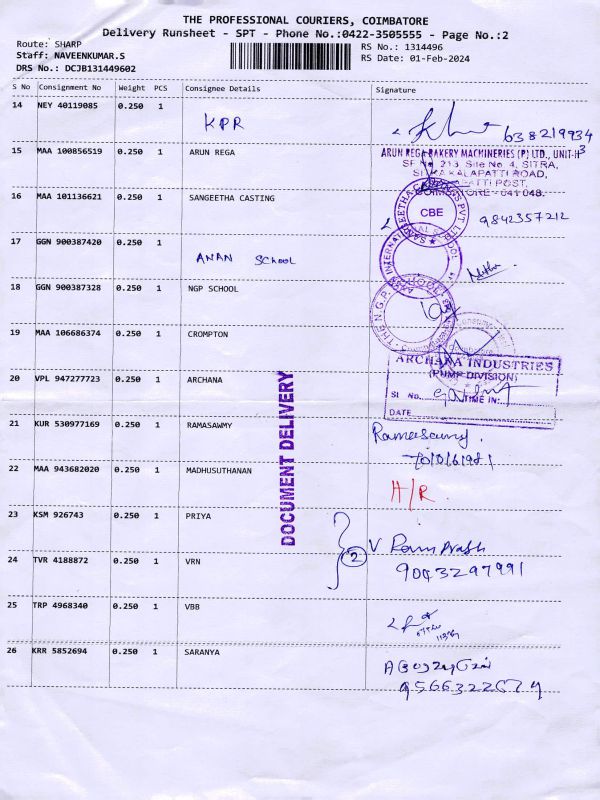 THE PROFESSIONAL COURIERS, COIMBATORE
Delivery Runsheet - SPT - Phone No.:0422-3505555 - Page No.:2
Route: SHARP
Staff: NAVEENKUMAR.S
DRS No.: DCJB131449602
RS No.: 1314496
RS Date: 01-Feb-2024
S No Consignment No Weight PCS Consignee Details Signature
14 NEY 40119085 0.250 1 KPR
15 MAA 100856519 0.250 1 ARUN REGA
ARUN REGA BAKERY MACHINERIES (P) LTD., UNIT-II
SF No. 213, Site No. 4, SITRA,
KALAPATTI ROAD,
COIMBATORE - 641 048.
16 MAA 101136621 0.250 1 SANGEETHA CASTING 9842357212
CBE
17 GGN 900387420 0.250 1 ANAN School
18 GGN 900387328 0.250 1 NGP SCHOOL
19 MAA 106686374 0.250 1 CROMPTON
ARCHANA INDUSTRIES
(PUMP DIVISION)
20 VPL 947277723 0.250 1 ARCHANA
SI No. TIME IN:
DATE
DOCUMENT DELIVERY
21 KUR 530977169 0.250 1 RAMASAWMY Ramasawmy.
22 MAA 943682020 0.250 1 MADHUSUTHANAN H/R.
23 KSM 926743 0.250 1 PRIYA
2 V Ram Prasth
9043297991
24 TVR 4188872 0.250 1 VRN
25 TRP 4968340 0.250 1 VBB
26 KRR 5852694 0.250 1 SARANYA